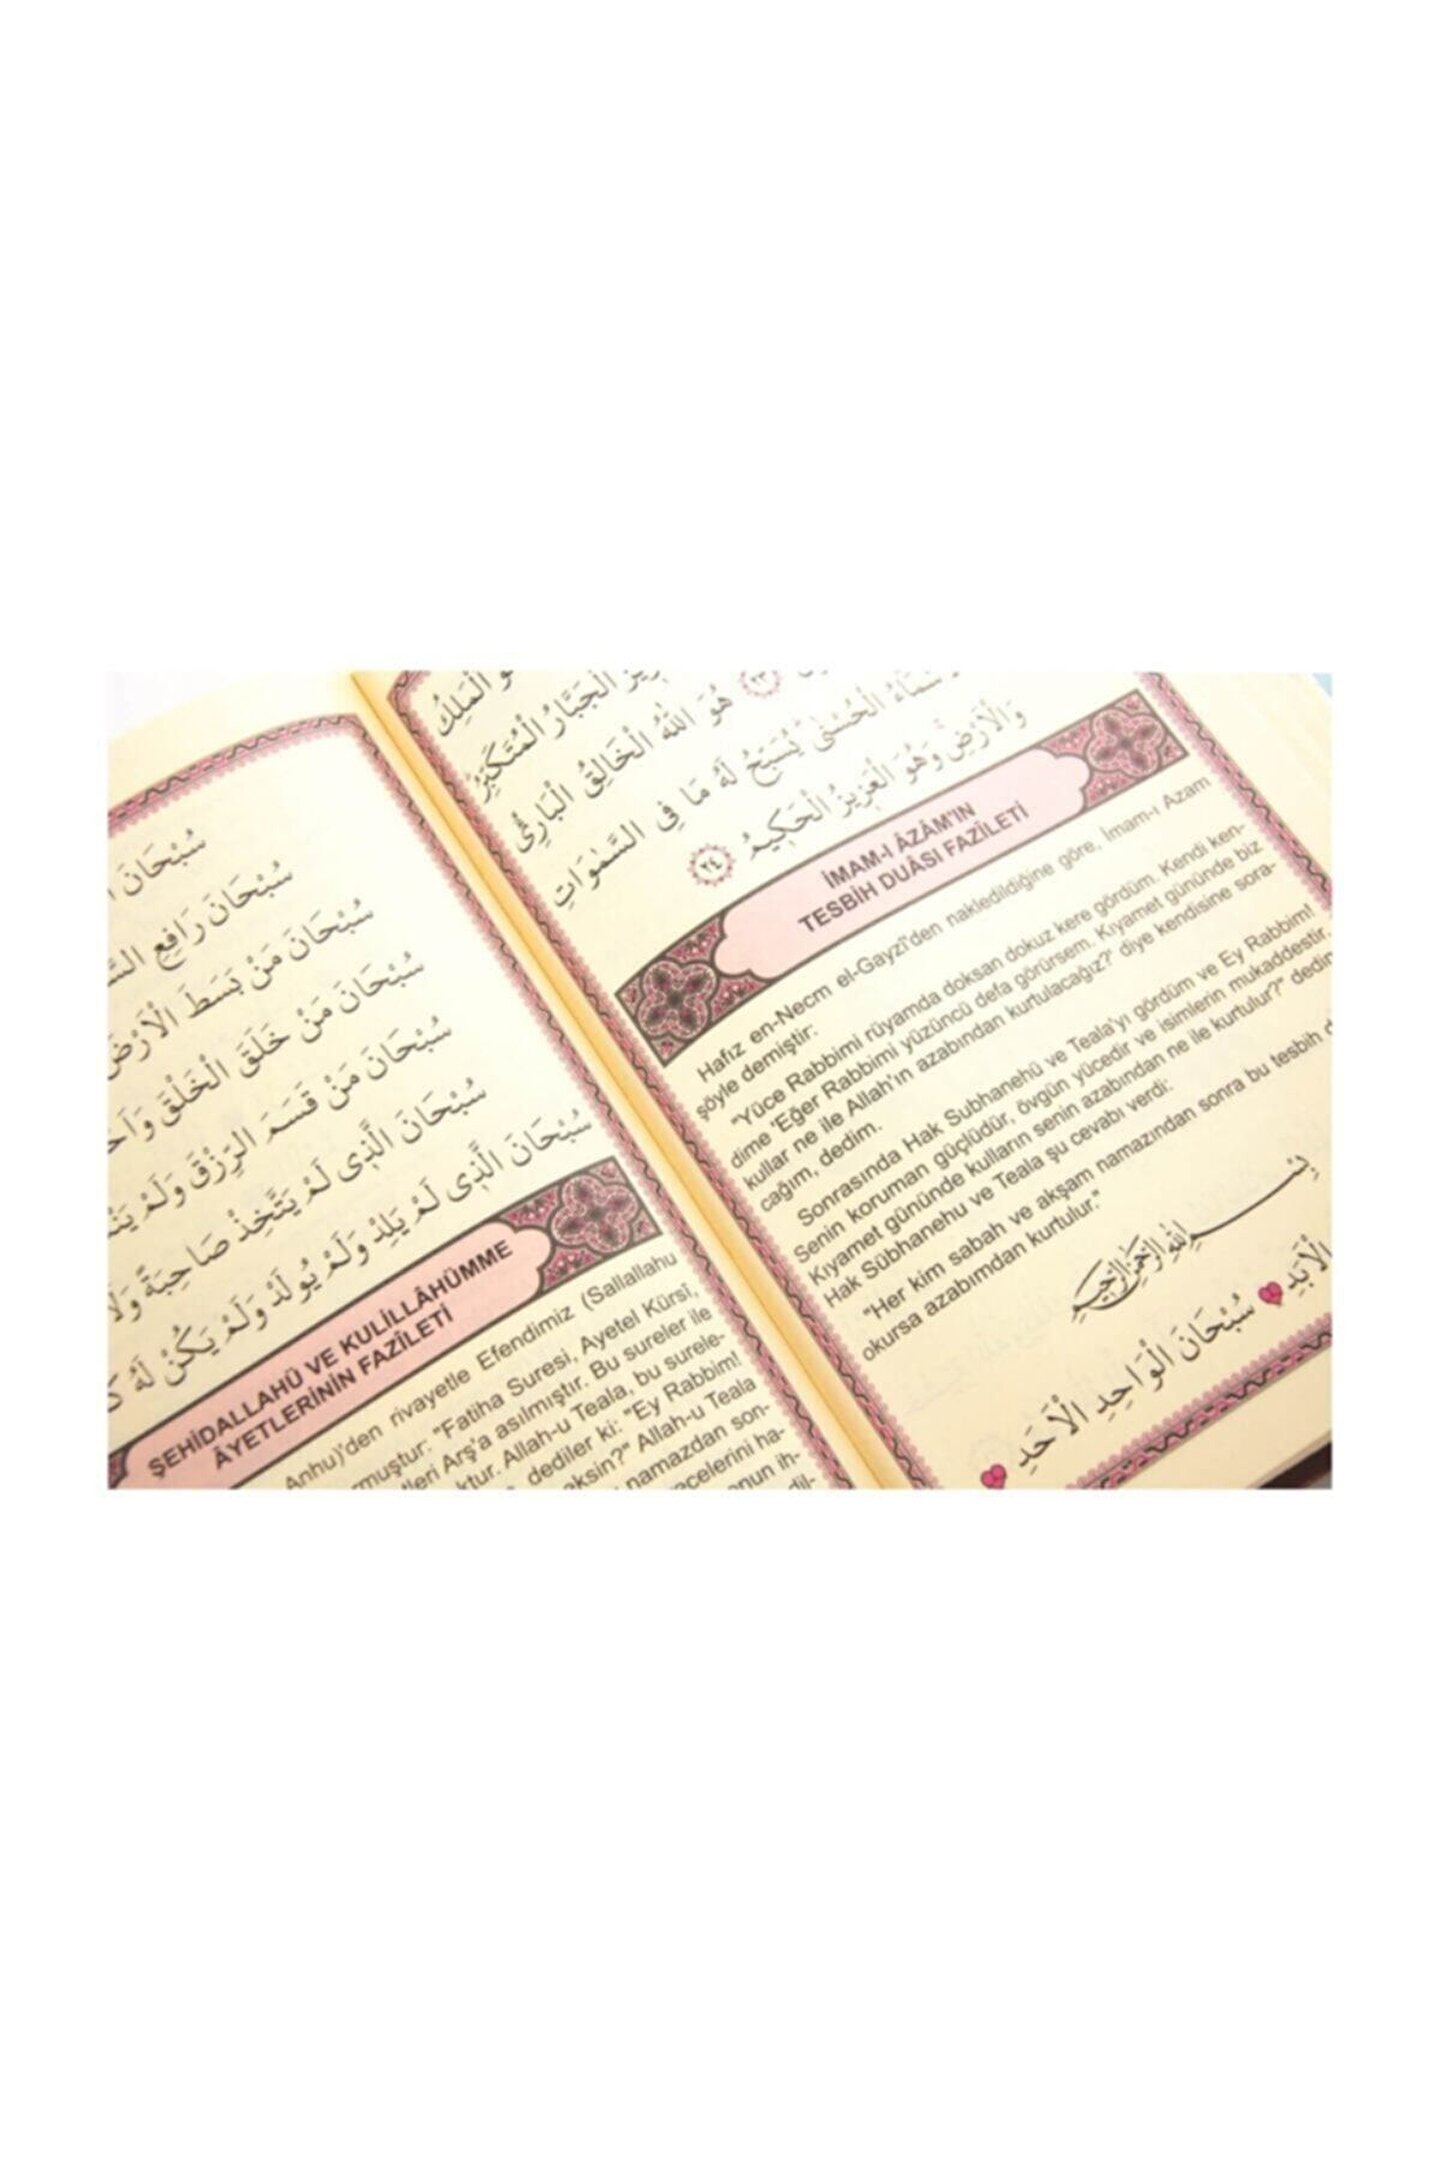 سُبْحَانَ
سُبْحَانَ رَافِعِ
سُبْحَانَ مَنْ بَسَطَ الْاَرْضَ
سُبْحَانَ مَنْ خَلَقَ الْخَلْقَ وَاَ
سُبْحَانَ مَنْ قَسَمَ الرِّزْقَ وَلَمْ
سُبْحَانَ الَّذِى لَمْ يَتَّخِذْ صَاحِبَةً وَلَا
سُبْحَانَ الَّذِى لَمْ يَلِدْ وَلَمْ يُولَدْ وَلَمْ يَكُنْ لَهُ
ŞEHİDALLAHÜ VE KULİLLÂHÜMME
ÂYETLERİNİN FAZİLETİ
Anhu)'den rivayetle Efendimiz (Sallallahu
rmuştur: "Fatiha Suresi, Ayetel Kürsî,
leri Arş'a asılmıştır. Bu sureler ile
ktur. Allah-u Teala, bu surele-
dediler ki: "Ey Rabbim!
eksin?" Allah-u Teala
namazdan son-
ecelerini ha-
onun ih-
dil-
الْمَلِكُ
الْجَبَّارُ الْمُتَكَبِّرُ
٢٣ هُوَ اللّٰهُ الْخَالِقُ الْبَارِئُ
الْحُسْنٰى يُسَبِّحُ لَهُ مَا فِى السَّمٰوَاتِ
وَالْاَرْضِ وَهُوَ الْعَزِيزُ الْحَكِيمُ ٢٤
İMAM-I ÂZÂM'IN
TESBİH DUÂSI FAZİLETİ
Hafız en-Necm el-Gayzî'den nakledildiğine göre, İmam-ı Azam
şöyle demiştir:
"Yüce Rabbimi rüyamda doksan dokuz kere gördüm. Kendi ken-
dime 'Eğer Rabbimi yüzüncü defa görürsem. Kıyamet gününde biz
kullar ne ile Allah'ın azabından kurtulacağız?' diye kendisine sora-
cağım, dedim.
Sonrasında Hak Subhanehü ve Teala'yı gördüm ve Ey Rabbim!
Senin koruman güçlüdür, övgün yücedir ve isimlerin mukaddestir.
Kıyamet gününde kulların senin azabından ne ile kurtulur?" dedim
Hak Sübhanehu ve Teala şu cevabı verdi:
"Her kim sabah ve akşam namazından sonra bu tesbih d
okursa azabımdan kurtulur."
بِسْمِ اللّٰهِ الرَّحْمٰنِ الرَّحِيمِ
الْاَبَدِ سُبْحَانَ الْوَاحِدِ الْاَحَدِ